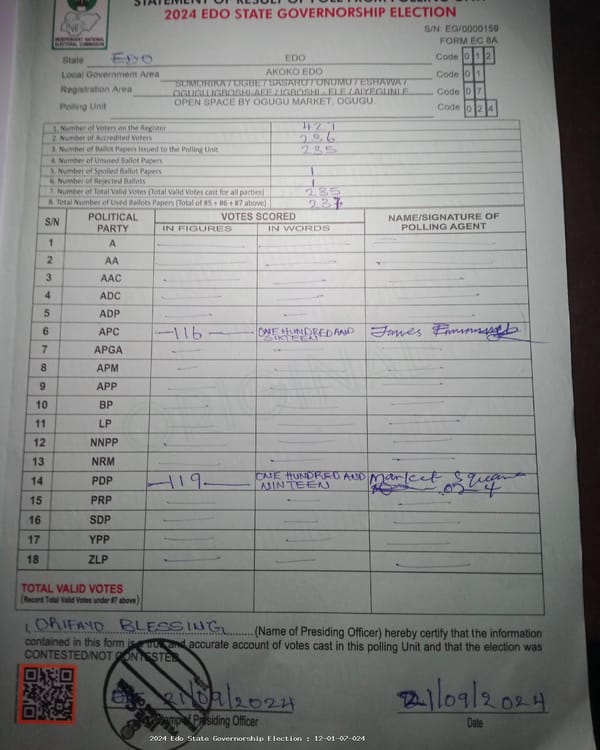 STATEMENT OF RESULT OF POLL FROM POLLING UNIT
2024 EDO STATE GOVERNORSHIP ELECTION
INDEPENDENT NATIONAL ELECTORAL COMMISSION
S/N: EG/0000159
FORM EC 8A
State EDO EDO Code 0 1 2
Local Government Area AKOKO EDO Code 0 1
Registration Area SOMORIKA / OGBE / SASARO / ONUMU / ESHAWA / OGUGU, IGBOSHI-AFE / IGBOSHI - ELE / AIYEGUNLE Code 0 7
Polling Unit OPEN SPACE BY OGUGU MARKET, OGUGU. Code 0 2 4
1. Number of Voters on the Register 427
2. Number of Accredited Voters 236
3. Number of Ballot Papers Issued to the Polling Unit
4. Number of Unused Ballot Papers
5. Number of Spoiled Ballot Papers 1
6. Number of Rejected Ballots 1
7. Number of Total Valid Votes (Total Valid Votes cast for all parties) 235
8. Total Number of Used Ballots Papers (Total of #5 + #6 + #7 above) 237
S/N POLITICAL PARTY VOTES SCORED NAME/SIGNATURE OF POLLING AGENT
IN FIGURES IN WORDS
1 A
2 AA
3 AAC
4 ADC
5 ADP
6 APC 116 ONE HUNDRED AND SIXTEEN James
7 APGA
8 APM
9 APP
10 BP
11 LP
12 NNPP
13 NRM
14 PDP 119 ONE HUNDRED AND NINTEEN Market Square 024
15 PRP
16 SDP
17 YPP
18 ZLP
TOTAL VALID VOTES
(Record Total Valid Votes under #7 above)
I, ORIFAYO BLESSING (Name of Presiding Officer) hereby certify that the information
contained in this form is a true and accurate account of votes cast in this polling Unit and that the election was
CONTESTED/NOT CONTESTED
21/09/2024 21/09/2024
Stamp of Presiding Officer Date
2024 Edo State Governorship Election : 12-01-07-024